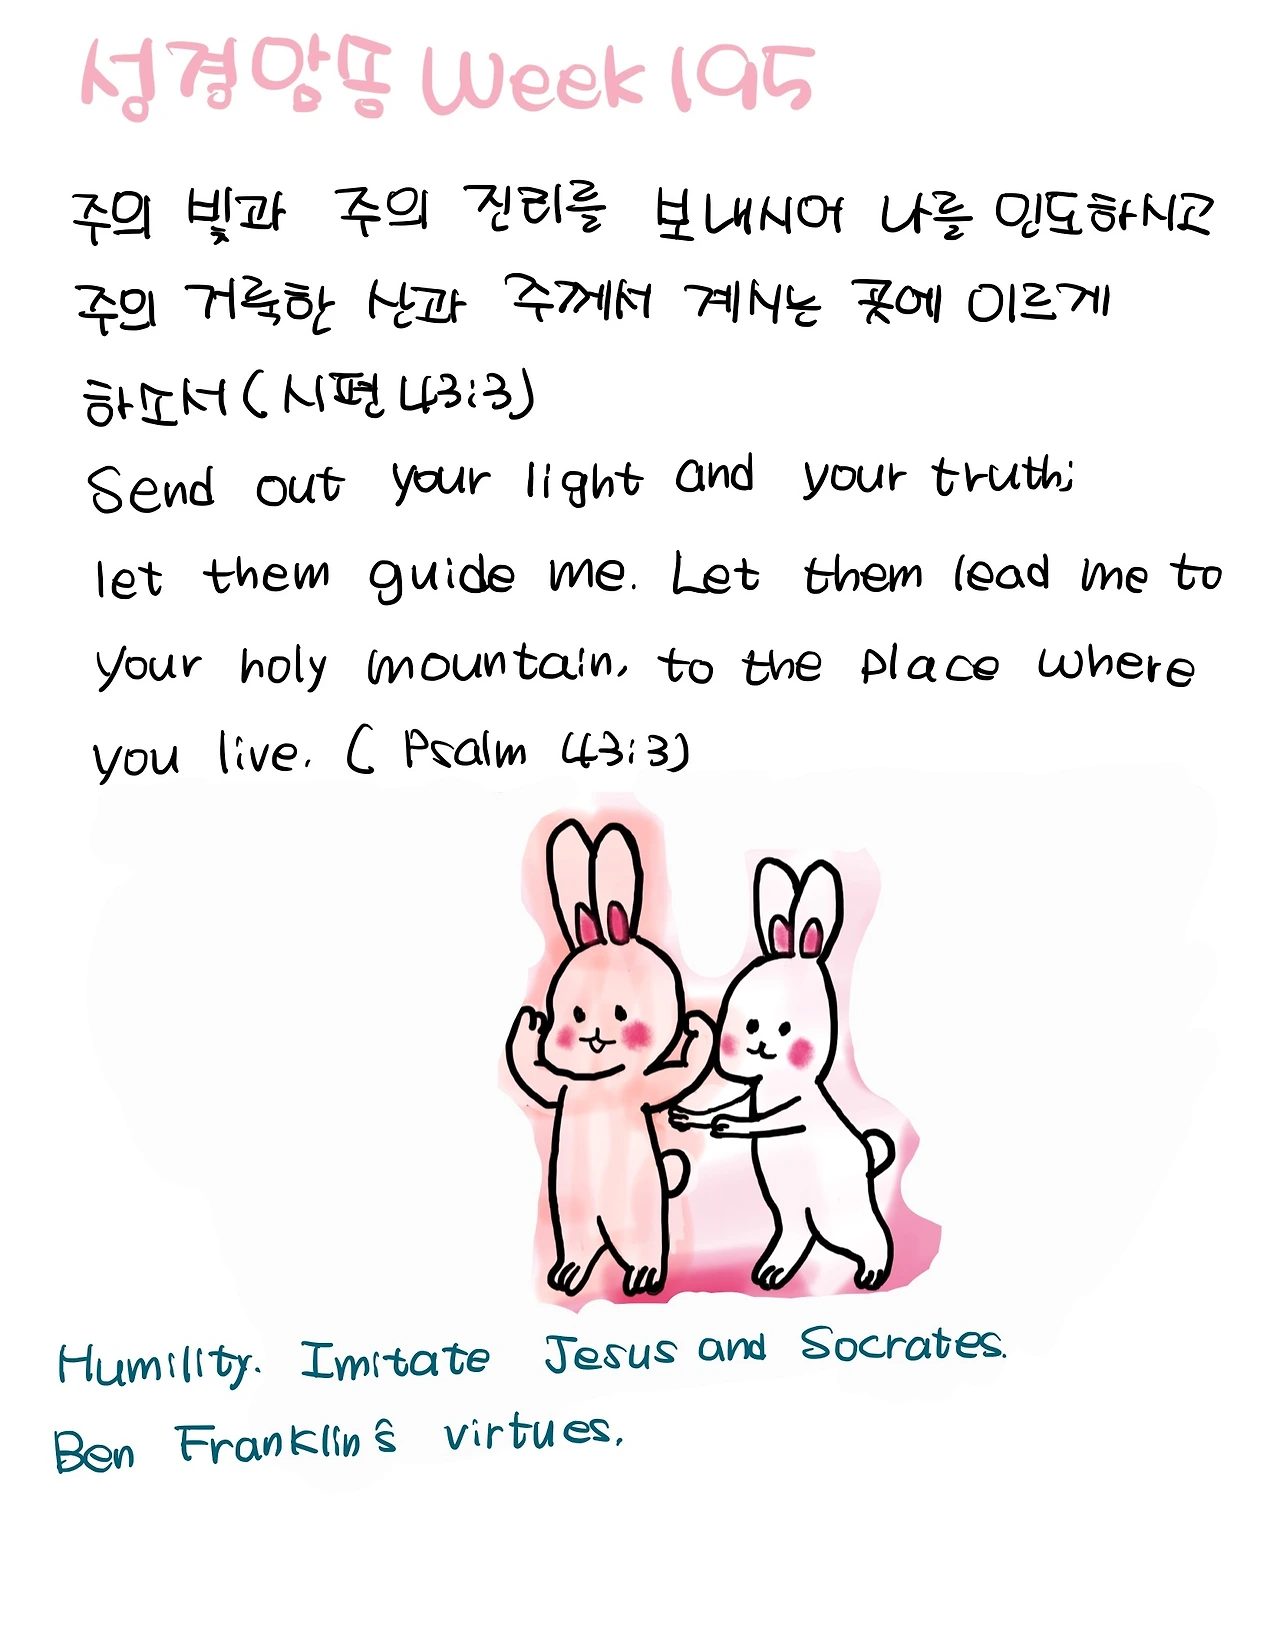 성경암송 Week 195
주의 빛과 주의 진리를 보내시어 나를 인도하시고
주의 거룩한 산과 주께서 계시는 곳에 이르게
하소서(시편 43:3)
Send out your light and your truth;
let them guide me. Let them lead me to
your holy mountain, to the place where
you live. (Psalm 43:3)
Humility. Imitate Jesus and Socrates.
Ben Franklin's virtues.